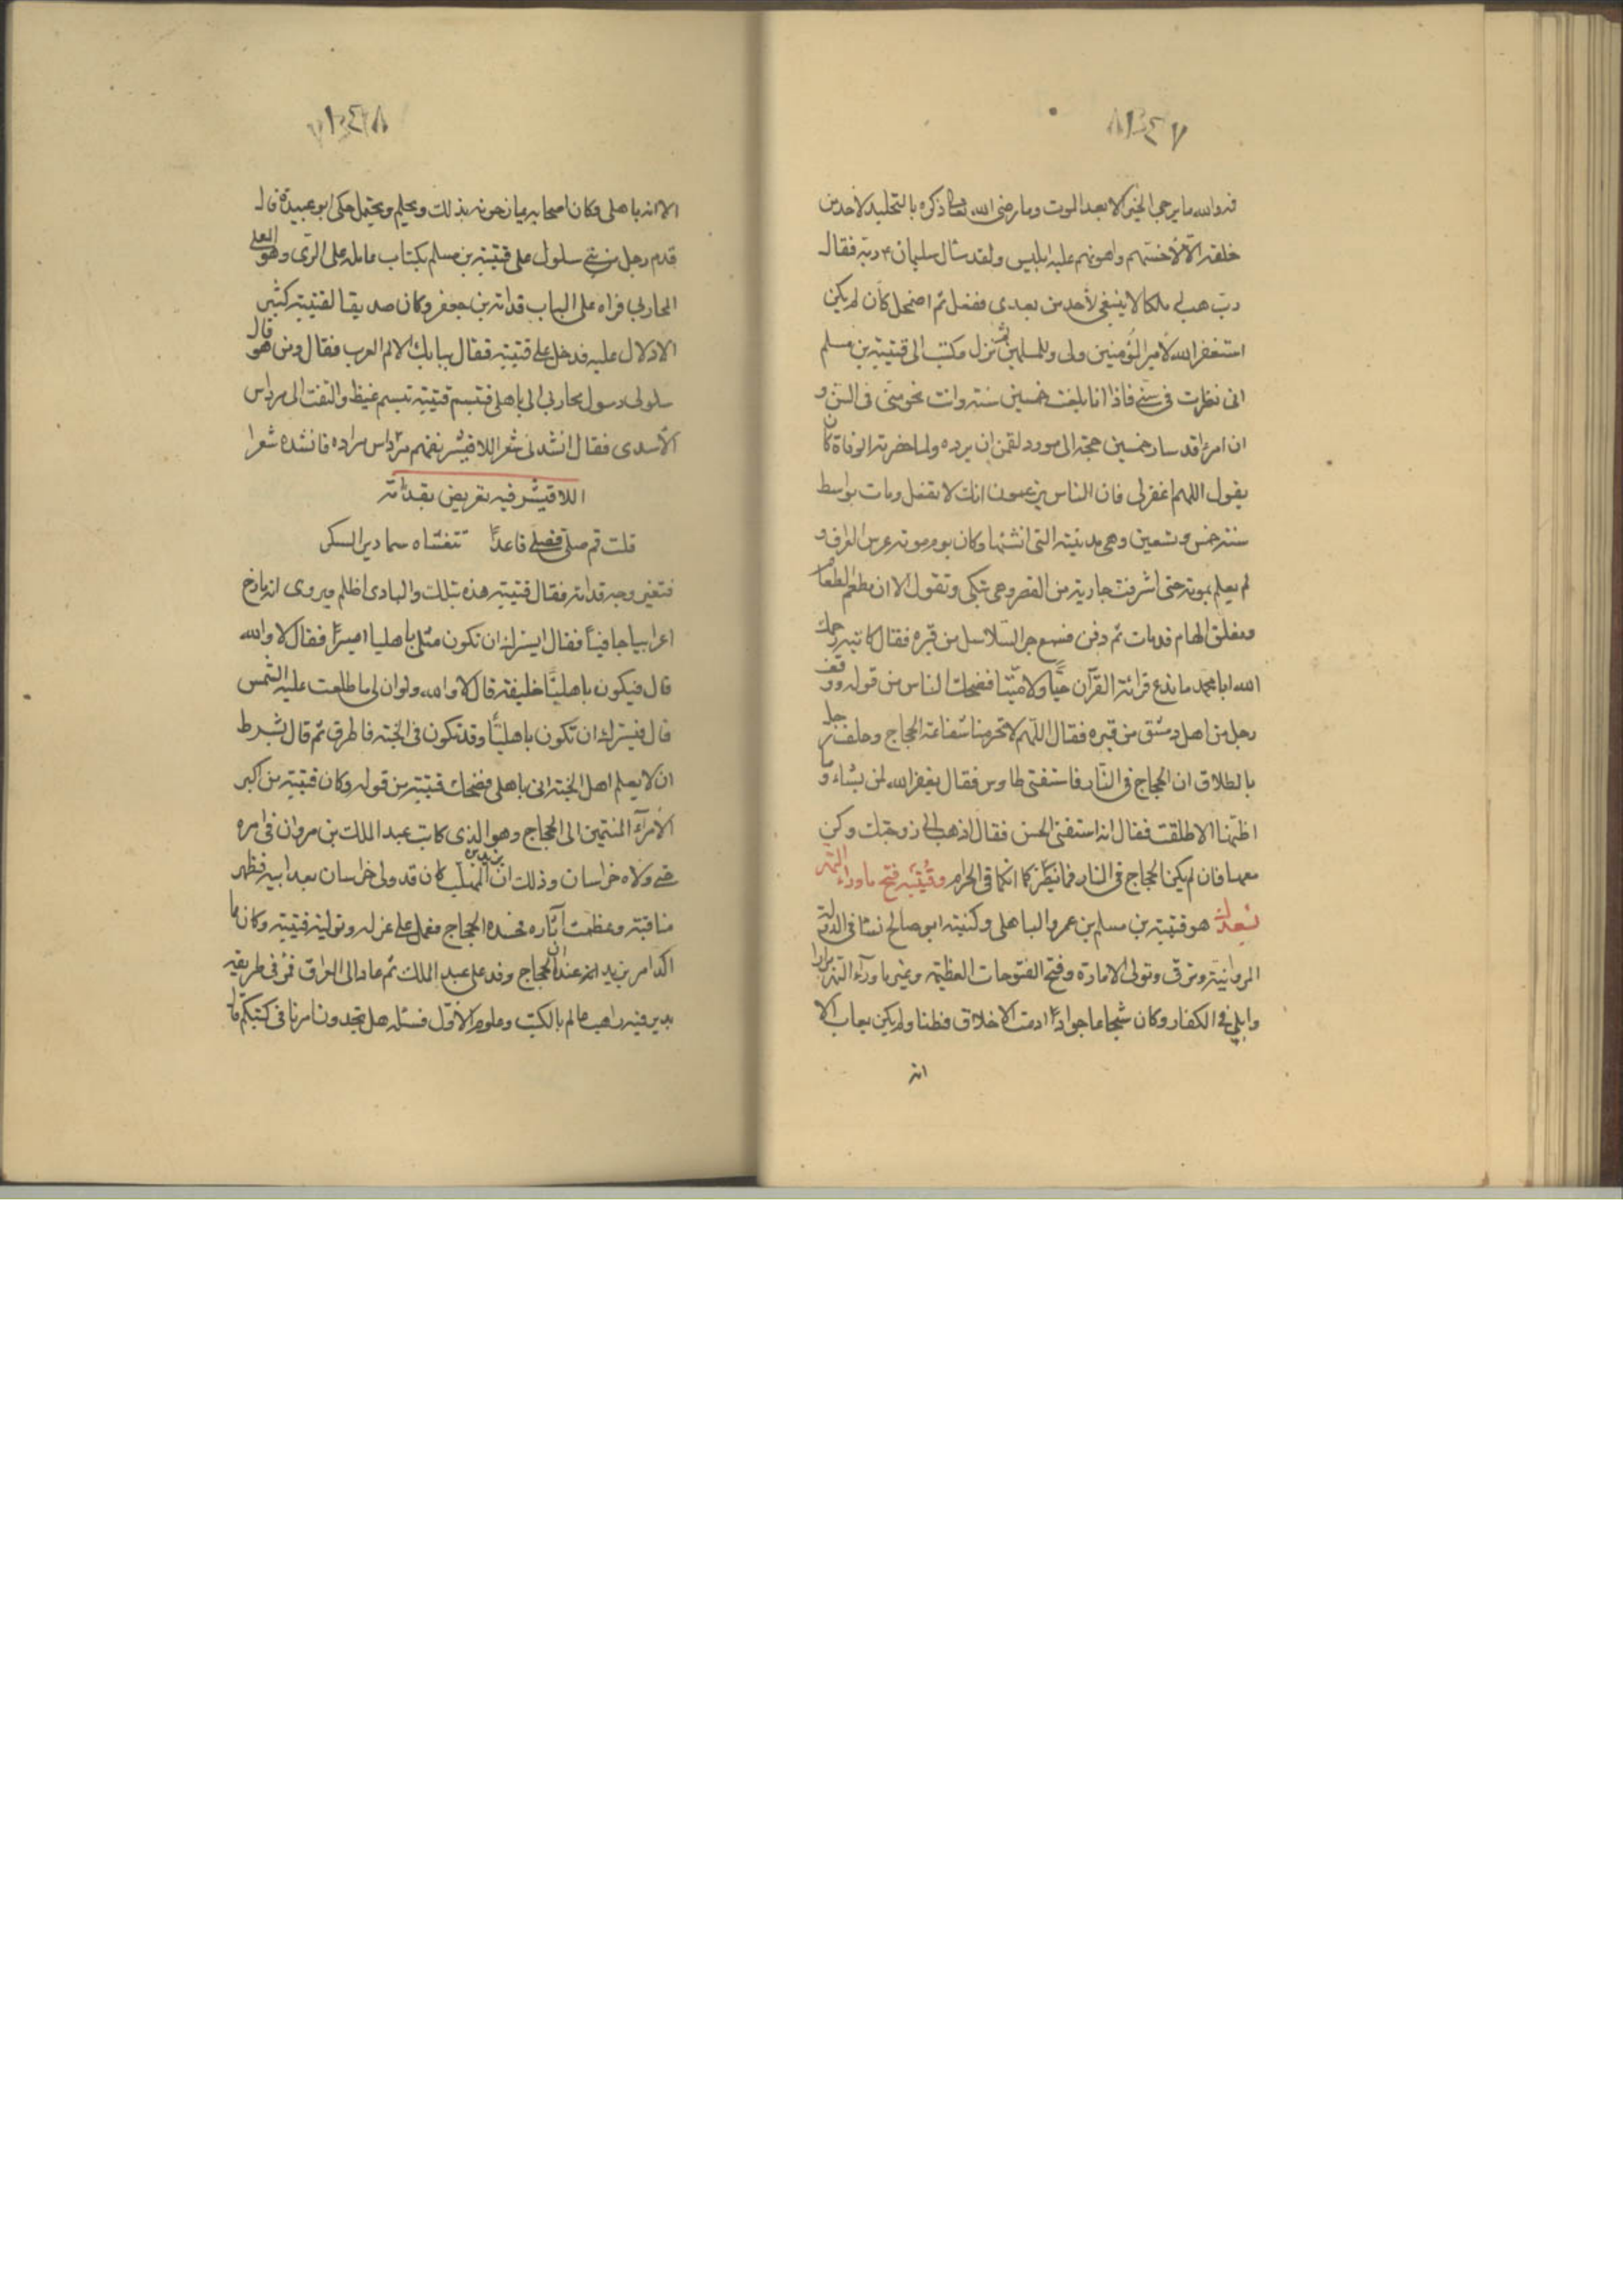 ١٣٤٧
فو الله ما يرجى الخير الا بعد الموت وما رضى الله تعالى ذكره بالتخليد لاحد من
خلقه الا لأخسّهم واهونهم عليه ابليس ولقد سأل سليمان ٤ ربه فقال
رب هب لى ملكا لا ينبغى لأحد من بعدى ففعل ثم اضمحل كأن لم يكن
استغفر الله لأمير المؤمنين ولى وللمسلمين ثم نزل وكتب الى قتيبة بن مسلم
انى نظرت فى سنى فاذا انا بلغت خمسين سنة وانت نحو منى فى السن و
ان امرءا قد سار خمسين حجة الى مورد لقمن ان يرده ولما حضرته الوفاة كان
يقول اللهم اغفر لى فان الناس يزعمون انك لا تفعل ومات بواسط
سنة خمس وتسعين وهى مدينته التى انشئها وكان يوم موته عرس العراق و
لم يعلم بموته حتى اشرفت جارية من القصر وهى تبكى وتقول الا ان مطعم الطعام
ومفلق الهام قد مات ثم دفن فسمع جر السلاسل من قبره فقال كاتبه رحمك
الله ابا محمد ما تدع قرائة القرآن حيًّا ولا ميّتا فضحك الناس من قوله ووقف
رجل من اهل دمشق من قبره فقال اللّهم لا تحرمنا شفاعة الحجاج وحلف رجل
بالطلاق ان الحجاج فى النّار فاستفتى طاوس فقال يغفر الله لمن يشاء وما
اظنّها الا طلقت فقال انه استفتى الحسن فقال اذهب الى زوجتك وكن
معها فان لم يكن الحجاج فى النار فما يضركما انكما فى الحرام وقُتيبَة فتح ماوراء النّهر
بسعدك هو قتيبة بن مسلم بن عمرو الباهلى وكنيته ابو صالح نشا فى الدولة
المروانية وترقى وتولى الامارة وفتح الفتوحات العظيمة وعبر ماورآء النهر مرارا
وابلى فى الكفار وكان شجاعا جوادًا دمث الاخلاق فطنا ولم يكن يعاب الا
انه
١٣٤٨
الا انه باهلى وكان اصحابه يمازحونه بذلك ويحلم ويحتمل حكى ابو عبيدة قال
قدم رجل من بنى سلول على قتيبة بن مسلم بكتاب عامله على الرّى وهو المعلى
المحاربى فراه على الباب قدامة بن جعفر وكان صديقا لقتيبة كثير
الادلال عليه فدخل على قتيبة فقال ببابك الأم العرب فقال ومن هو قال
سلولى رسول محاربى الى باهلى فتبسم قتيبة تبسم غيظ والتفت الى مرداس
الأسدى فقال انشدنى شعر اللاقيشر ففهم مرّداس مراده فانشده شعرا
اللاقيشر فيه تعريض بقدامة
قلت قم صلى فصلى قاعدًا تتغشاه سمادير السكر
فتغير وجه قدامة فقال قتيبة هذه بتلك والبادى اظلم ويروى انه مازح
اعرابيا جافيًا فقال ايسرك ان تكون مثلى باهليا اميرًا فقال لا والله
قال فتكون باهليًا خليفة قال لا والله ولو ان لى ما طلعت عليه الشّمس
قال فيسرك ان تكون باهليًّا وقد تكون فى الجنة فاطرق ثم قال بشرط
ان لا يعلم اهل الجنة انى باهلى فضحك قتيبة من قوله وكان قتيبة من اكبر
الأمرآء المنتمين الى الحجاج وهو الذى كاتب عبد الملك بن مروان فى امره
حتى ولاه خراسان وذلك ان يزيد بن المهلب كان قد ولى خراسان بعد ابيه فظهر
مناقبة وعظمت آثاره فحسده الحجاج فعمل على عزله وتولية قتيبة وكان ما
اكد امر يزيد عند الحجاج ان وفد على عبد الملك ثم عاد الى العراق فمرّ فى طريقه
بدير فيه راهب عالم بالكتب وعلوم الأوّل فسئله هل تجدون امرنا فى كتبكم قال